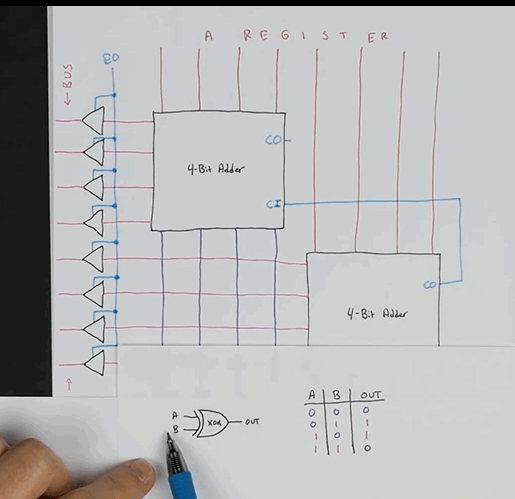 A REGISTER
EO
← BUS
CO
4-Bit Adder
CI
CO
4-Bit Adder
A
B
XOR
OUT
A B OUT
0 0 0
0 1 1
1 0 1
1 1 0